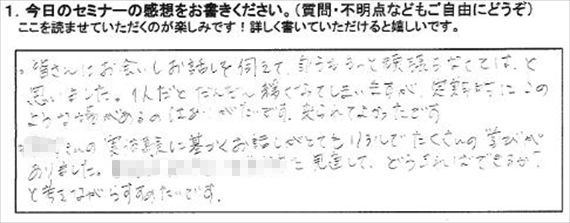 1. 今日のセミナーの感想をお書きください。(質問・不明点などもご自由にどうぞ)
ここを読ませていただくのが楽しみです！詳しく書いていただけると嬉しいです。
・皆さんにお会いしお話しを伺えて、自分ももっと頑張らなくては、と
思いました。1人だとだんだん緩くなってしまいますが、定期的にこの
ような場があるのはありがたいです。来られてよかったです
さんの実体験に基づくお話しがとても でたくさんの学びが
ありました。 と見直して、どうすればできるか？
と考えながら すすめたいです。